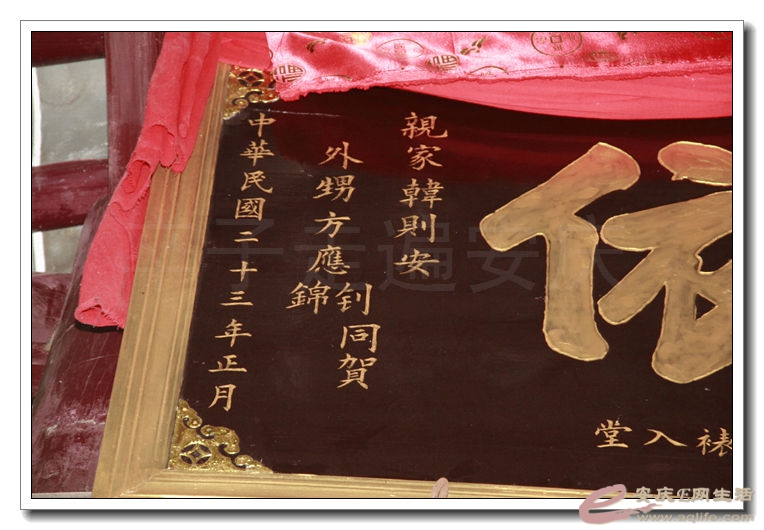 入堂
親家韓則安
外甥方應釗錦同賀
中華民國二十三年正月
安庆E网生活
www.aqlife.com